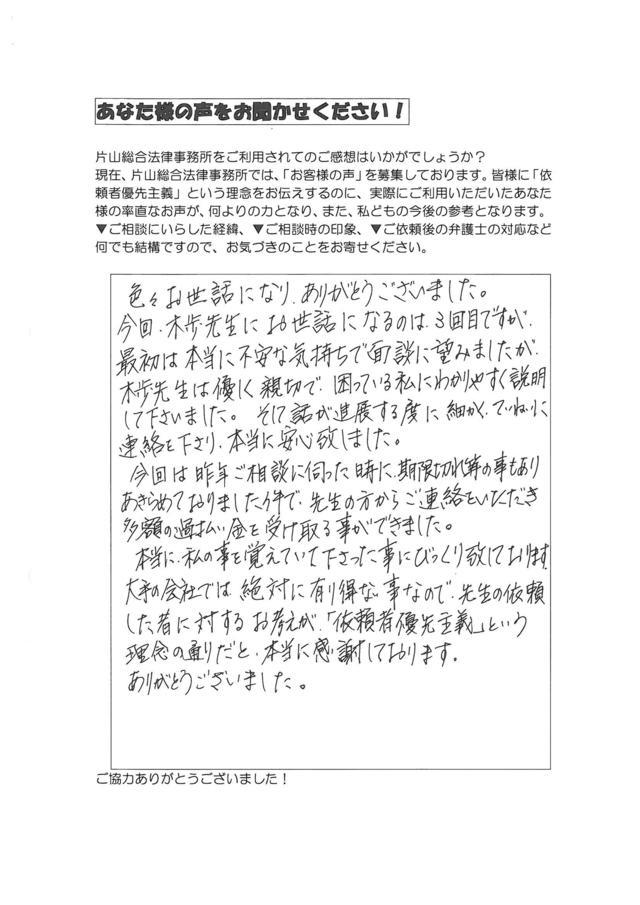 あなた様の声をお聞かせください！
片山総合法律事務所をご利用されてのご感想はいかがでしょうか？
現在、片山総合法律事務所では、「お客様の声」を募集しております。皆様に「依
頼者優先主義」という理念をお伝えするのに、実際にご利用いただいたあなた
様の率直なお声が、何よりの力となり、また、私どもの今後の参考となります。
▼ご相談にいらした経緯、▼ご相談時の印象、▼ご依頼後の弁護士の対応など
何でも結構ですので、お気づきのことをお寄せください。
色々お世話になり、ありがとうございました。
今回、木歩先生にお世話になるのは、3回目ですが、
最初は本当に不安な気持ちで面談に望みましたが
木歩先生は優しく親切で、困っている私にわかりやすく説明
して下さいました。そして話が進展する度に細かく、ていねいに
連絡を下さり、本当に安心致しました。
今回は昨年ご相談に伺った時に、期限切れ等の事もあり
あきらめておりました件で、先生の方からご連絡をいただき
多額の過払い金を受け取る事ができました。
本当に、私の事を覚えていて下さった事にびっくり致しております
大手の会社では絶対に有り得ない事なので、先生の依頼
した者に対するお考えが、「依頼者優先主義」という
理念の通りだと、本当に感謝しております。
ありがとうございました。
ご協力ありがとうございました！